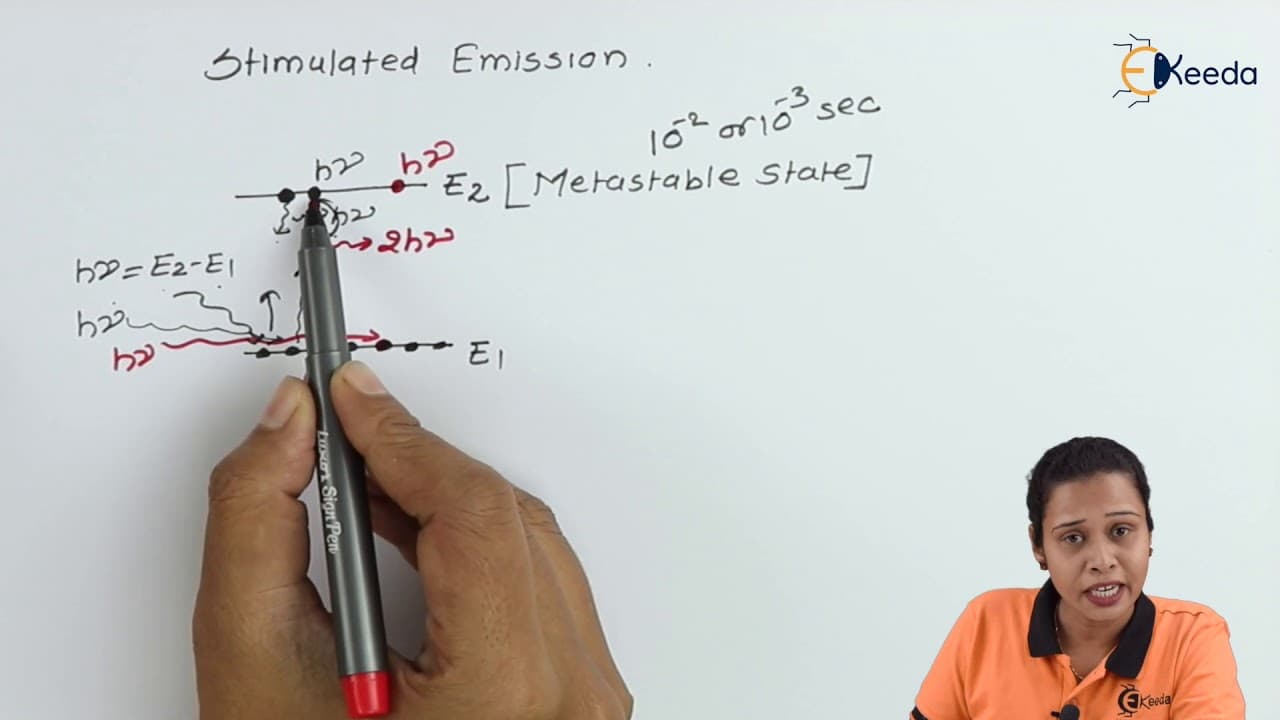 Stimulated Emission.
EKeeda
10⁻² or 10⁻³ sec
hν hν
E2 [Metastable State]
hν
2hν
hν = E2-E1
hν
hν
E1
Luxor Sign Pen
EKeeda